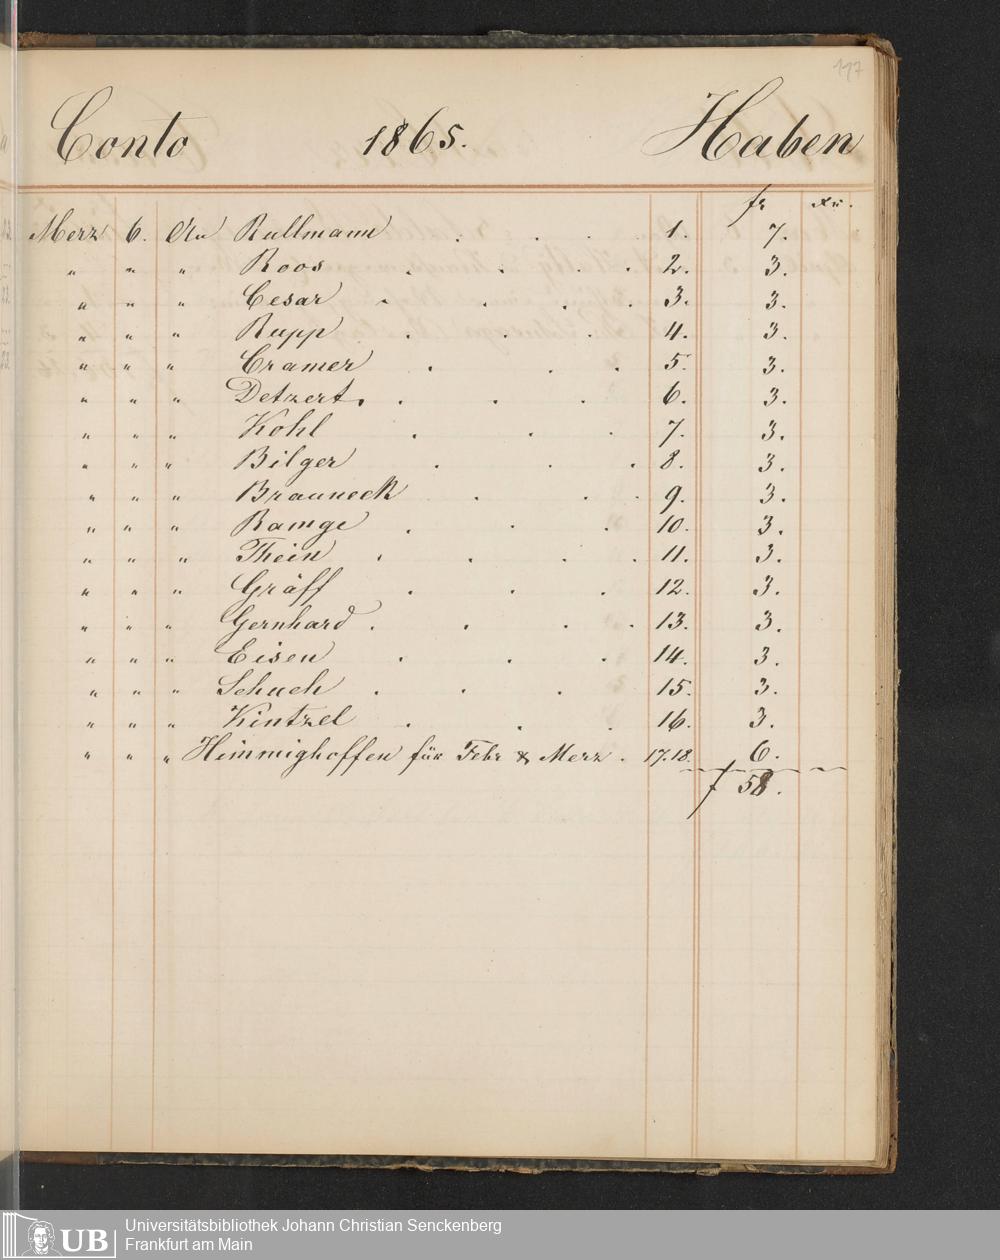 117
Conto 1865. Haben
fr xr.
Merz 6. An Rullmann . . . 1. 7.
" " " Roos . . . 2. 3.
" " " Cesar . . . 3. 3.
" " " Rupp . . . 4. 3.
" " " Cramer . . . 5. 3.
" " " Detzert . . . 6. 3.
" " " Kohl . . . 7. 3.
" " " Bilger . . . 8. 3.
" " " Brauneck . . . 9. 3.
" " " Ramge . . . 10. 3.
" " " Thein . . . . 11. 3.
" " " Gräff . . . 12. 3.
" " " Gernhard . . . . 13. 3.
" " " Eisen . . . 14. 3.
" " " Schuch . . . 15. 3.
" " " Kintzel . . . 16. 3.
" " " Himmighoffen für Febr & Merz . 17.18. 6.
f 58.
UB Universitätsbibliothek Johann Christian Senckenberg
Frankfurt am Main